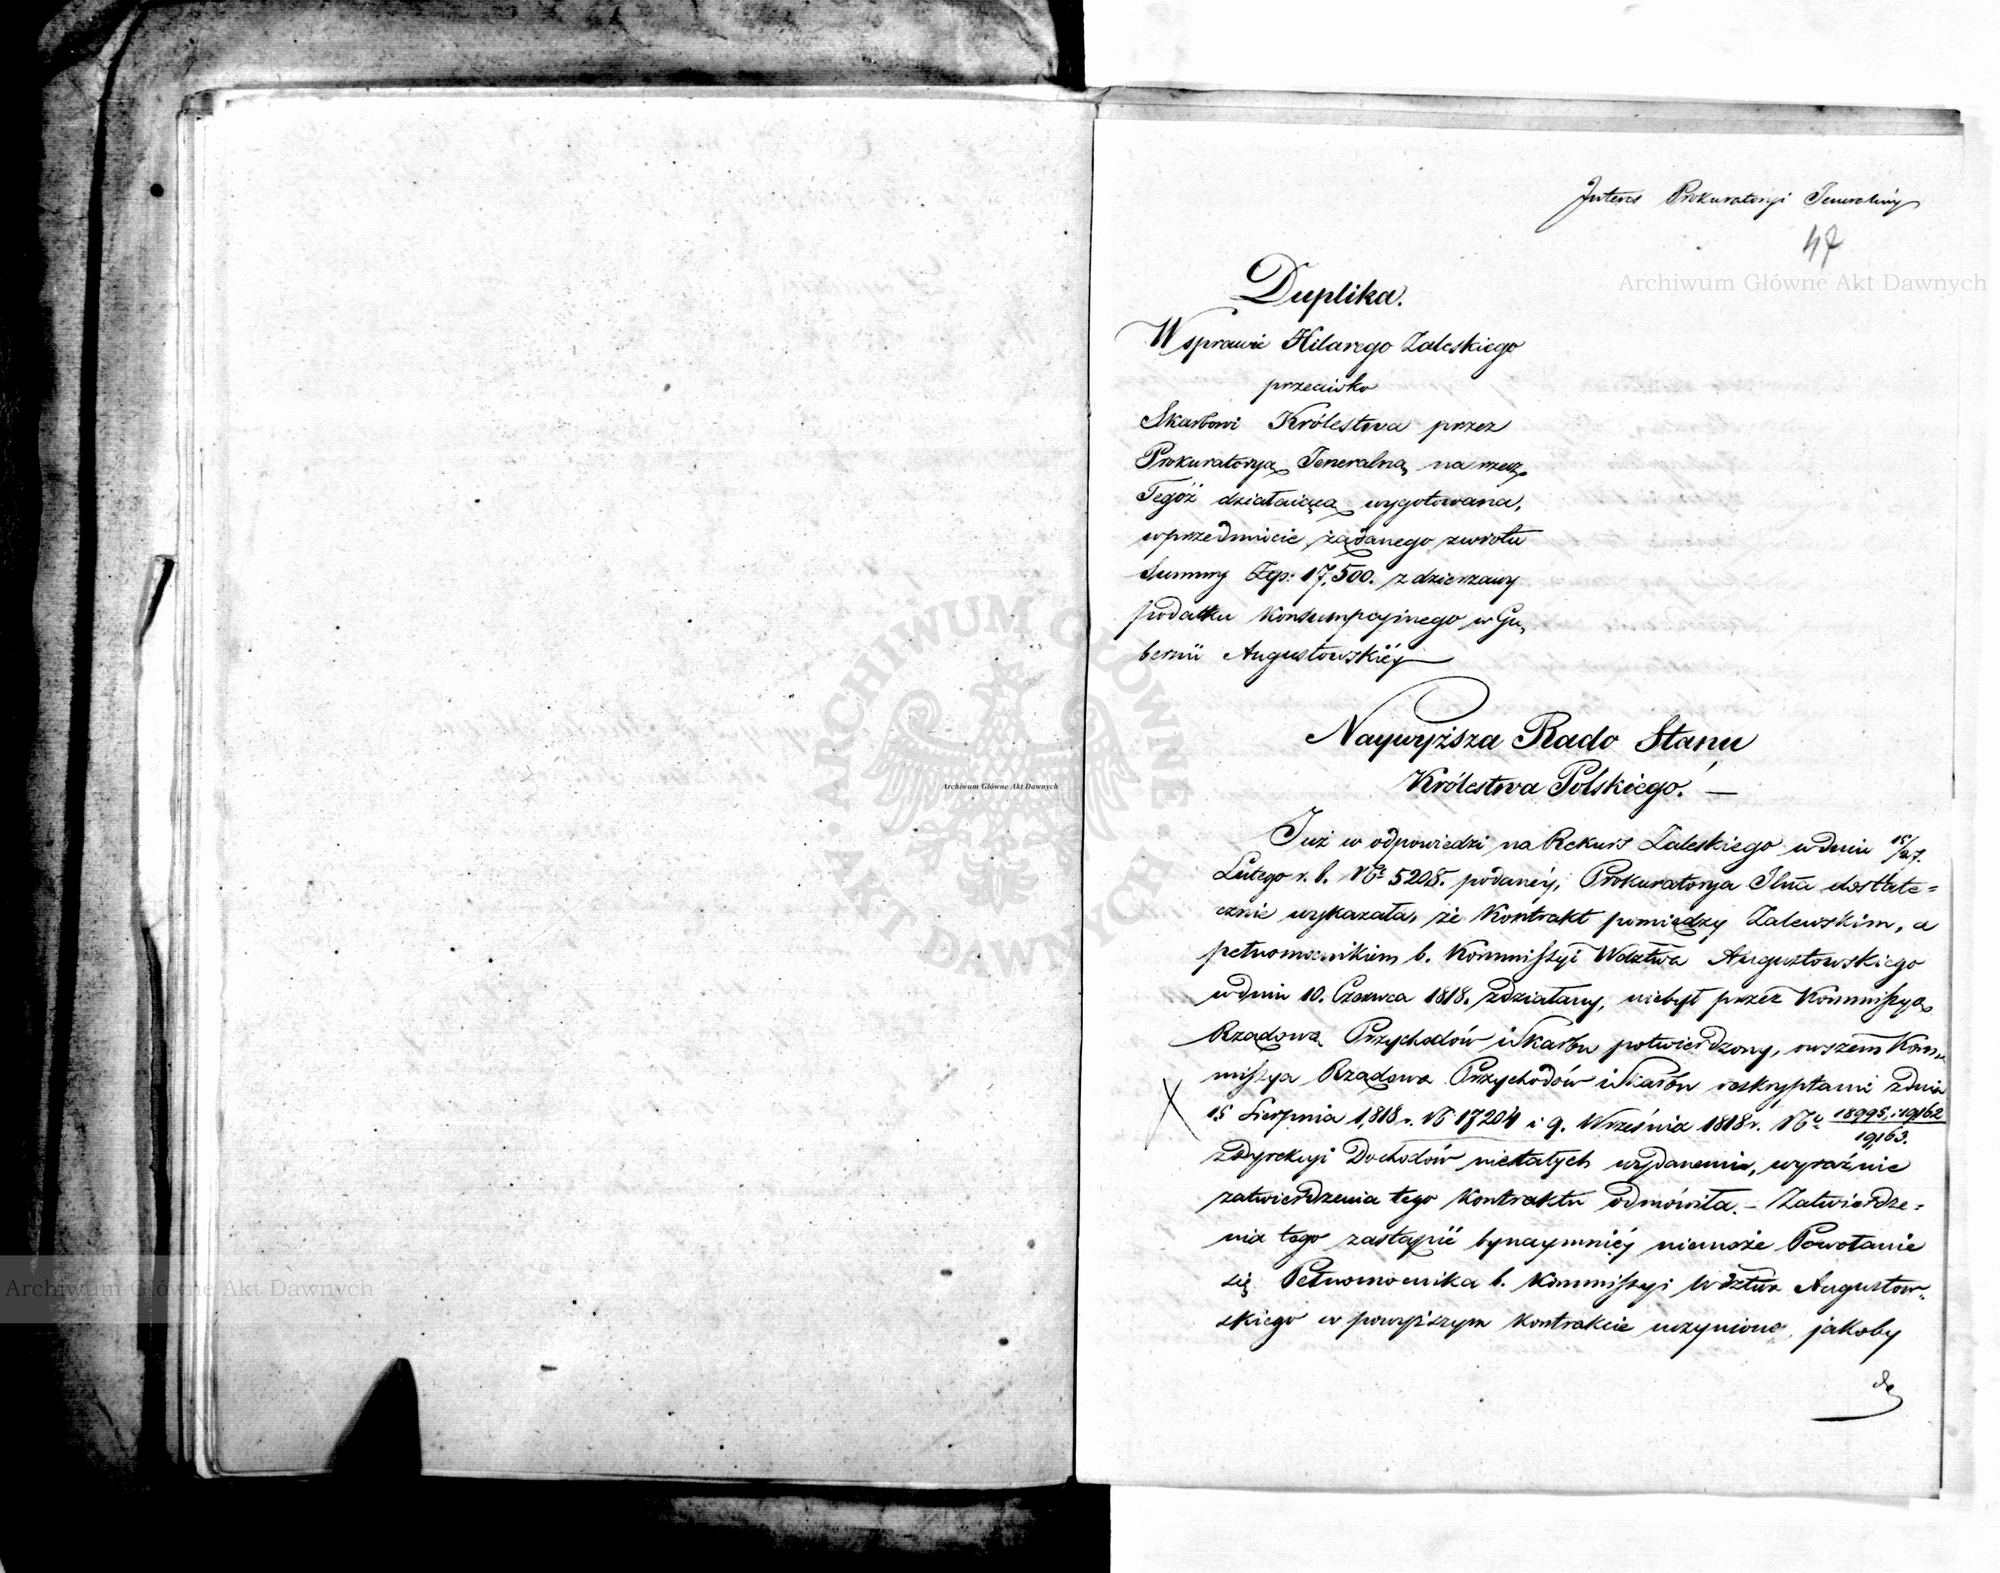 Interes Prokuratoryi Jeneralnéy
47
Archiwum Główne Akt Dawnych
Duplika.
W sprawie Hilarego Zaleskiego
przeciwko
Skarbowi Królestwa przez
Prokuratoryą Jeneralną na rzecz
Tegóż działaiącą wygotowana,
w przedmiocie żądanego zwrotu
Summy Złp: 17,500. z dzierzawy
podatku Konsumpcyinego w Gu„
bernii Augustowskiéy
Naywyższa Rado Stanu
Królestwa Polskiego! —
Już w odpowiedzi na Rekurs Zaleskiego w dniu 15/27.
Lutego r. b. No 5208. podanéy, Prokuratorya Jlna dostate=
cznie wykazała, że Kontrakt pomiędzy Zalewskim, a
pełnomocnikiem b. Kommissyi Wdztwa Augustowskiego
w dniu 10. Czerwca 1818. zdziałany, niebył przez Kommissyą
Rządową Przychodów i Skarbu potwierdzony, owszem Kom„
missya Rządowa Przychodów i Skarbu reskryptami z dnia
15 Sierpnia 1818 r. No 17204 i 9. Września 1818 r. No 18995. i 19162
19,163.
z Dyrekcyi Dochodów niestałych wydanemi, wyraźnie
zatwierdzenia tego Kontraktu odmówiła. – Zatwierdze=
nia tego zastąpić bynaymniéy niemoże Powołanie
się Pełnomocnika b. Kommissyi Wdztwa Augustow„
skiego w powyższym Kontrakcie uczynione, jakoby
de
ARCHIWUM GŁÓWNE
AKT DAWNYCH
Archiwum Główne Akt Dawnych
Archiwum Główne Akt Dawnych